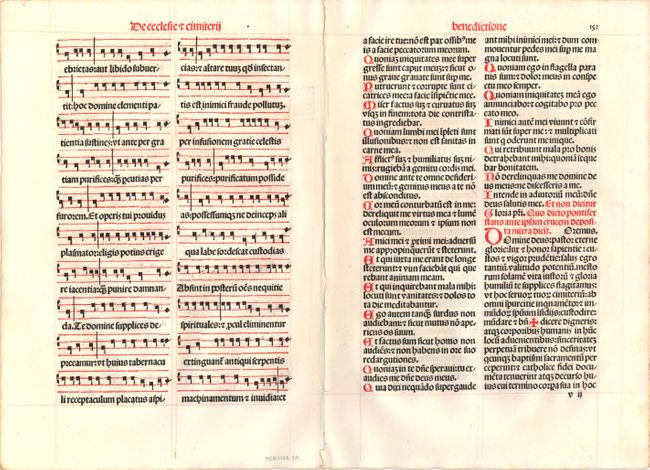 De ecclesie ⁊ cimiterij
ebrietas: aut libido subuer
tit: hoc domine clementi pa
tientia sustines: vt ante per gra
tiam purifices: qȝ percutias per
furorem. Et operis tui prouidus
plasmator: eligis potius erige
re iacentia: qȝ punire damnan
da. Te domine supplices de
precamur: vt huius tabernacu
li receptaculum placatus aspi
cias: ⁊ altare tuuȝ qd insectan
tis est inimici fraude pollutuȝ.
per infusionem gratie celestis
purifices: purificatum posside
as: possessumqȝ ne deinceps ali
qua labe sordescat custodias
Absint in posterū oēs nequitie
spirituales: ⁊ pcul eliminentur
extinguant̄ antiqui serpentis
machinamentum ⁊ inuidia: et
benedictione
152
a facie ire tue: nō est pax ossibꝰ me
is a facie peccatorum meorum.
Quoniaȝ iniquitates mee super
gresse sunt caput meuȝ: ⁊ sicut o
nus graue grauate sunt sup me.
Putruerunt ⁊ corrupte sunt ci
catrices mee: a facie isipiētie mee.
Miser factus suȝ ⁊ curuatus suȝ
vsqȝ in finem: tota die contrista
tus ingrediebar.
Quoniam lumbi mei ipleti sunt
illusionibus: ⁊ non est sanitas in
carne mea.
Afflictꝰ suȝ ⁊ humiliatus suȝ ni
mis: rugiebā a gemitu cordis mei.
Domine ante te omne desideri
um meū: ⁊ gemitus meus a te nō
est absconditus.
Cor meū conturbatū est in me:
dereliquit me virtus mea ⁊ lumē
oculorum meorum ⁊ ipsum non
est mecum.
Amici mei ⁊ primi mei: aduersū
me appropinquerūt ⁊ steterunt.
Et qui iuxta me erant de longe
steterunt: ⁊ vim faciebāt qui que
rebant animam meam.
Et qui inquirebant mala mihi:
locuti sunt vanitates: ⁊ dolos to
ta die meditabantur.
Ego autem tanqȝ surdus non
audiebam: ⁊ sicut mutus nō ape
riens os suum.
Et factus sum sicut homo non
audiēs: ⁊ non habens in ore suo
redargutiones.
Quoniaȝ in te dn̄e speraui: tu ex
audies me dn̄e deus meus.
Quia dixi neqn̄do supergaude
ant mihi inimici mei: ⁊ dum com
mouentur pedes mei sup me ma
gna locuti sunt.
Quoniam ego in flagella para
tus sum: ⁊ dolor meus in conspe
ctu meo semper.
Quoniam iniquitatē meā ego
annunciabo: ⁊ cogitabo pro pec
cato meo.
Inimici autē mei viuunt ⁊ confir
mati sūnt super me: ⁊ multiplicati
sunt q̄ oderunt me inique.
Qui retribuunt mala pro bonis
detrahebant mihi: quoniā seque
bar bonitatem.
Nō derelinquas me domine de
us meus: ne discesseris a me.
Intende in adiutoriū meū: dn̄e
deus salutis mee. Et non dicitur
Gloria pr̄i. Quo dicto pontifex
stans ante ipsam crucem deposi
ta mitra dicit. Oremus.
Domine deus: pastor eterne
glorie: lux ⁊ honor sapientie: cu
stos ⁊ vigor prudētie: salus egro
tantiū: validitudo potentiū. mesto
rum solamē: vita iustorū ⁊ gloria
humiliū te supplices flagitamus:
vt hoc seruorꝝ tuorꝝ cimiteriū ab
omni spurcitie inqnamēto: ⁊ im
mūdorꝝ spūum isidijs: custodire:
mūdare ⁊ bn̄ ✠ dicere digneris:
atqȝ corporibus humanis in hūc
locū aduenientibus: sinceritateȝ
perpetuā tribuere nō desinas: vt
qcunqȝ baptismi sacramentū per
ceperint: ⁊ catholice fidei docu
mēta tenuerint atqȝ decurso hu
ius eui termino corpora sua in hoc
v ij